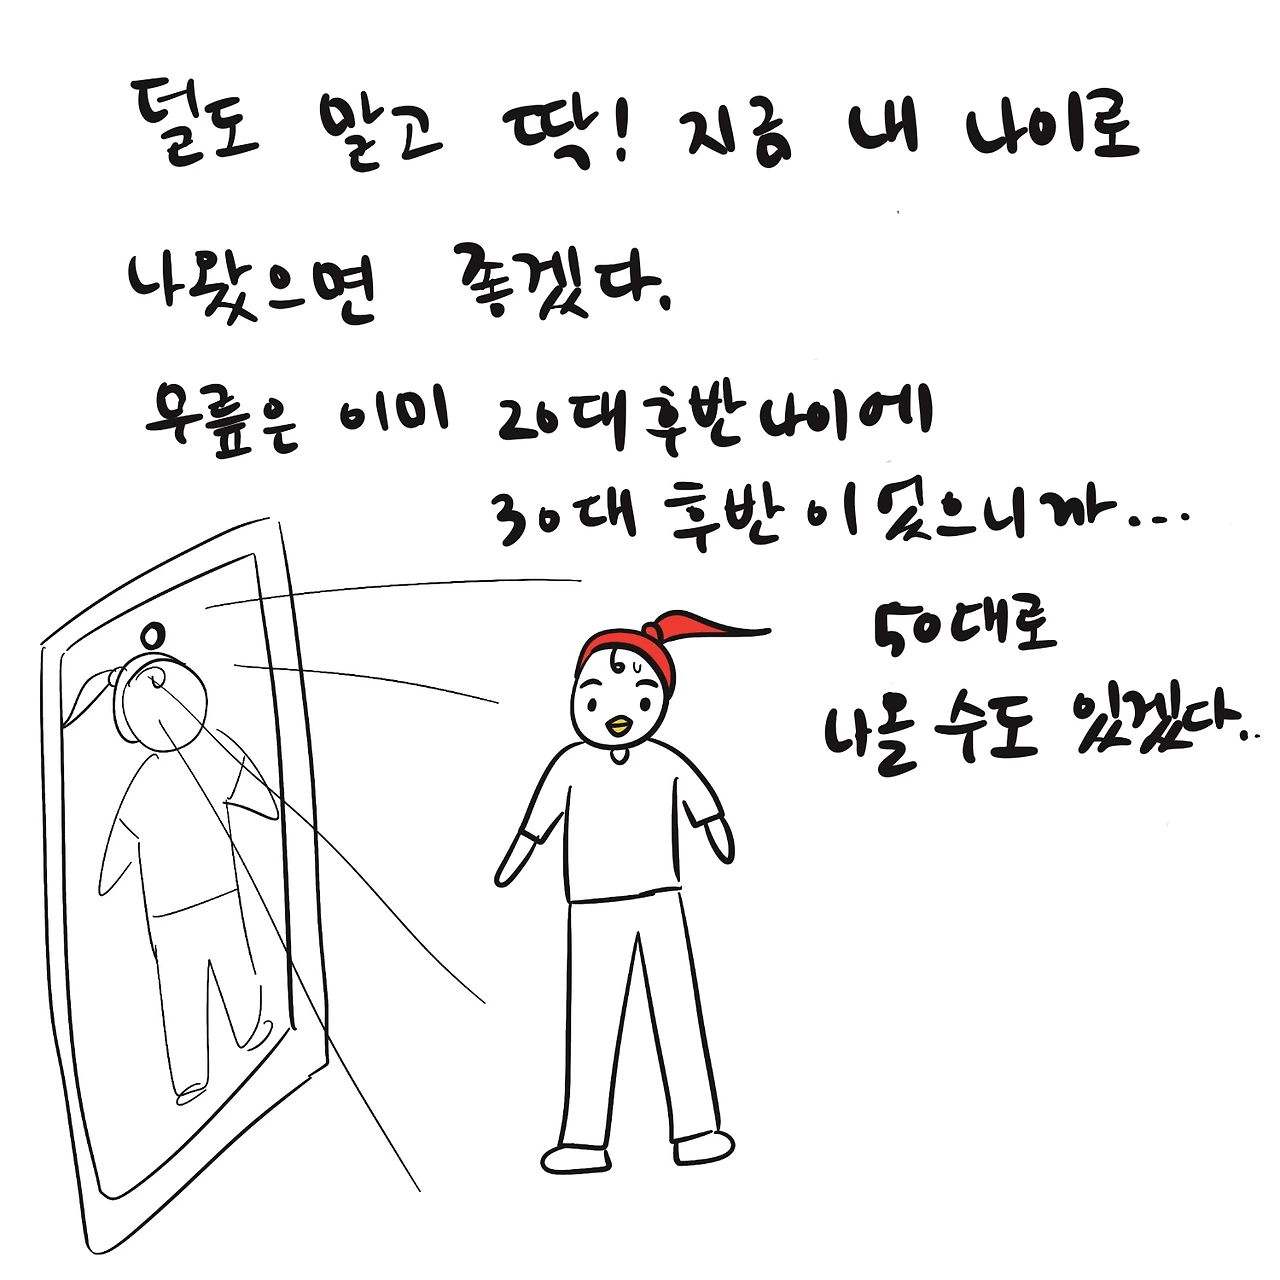 덜도 말고 딱! 지금 내 나이로
나왔으면 좋겠다.
무릎은 이미 20대 후반 나이에
30대 후반이었으니까...
50대로
나올 수도 있겠다..